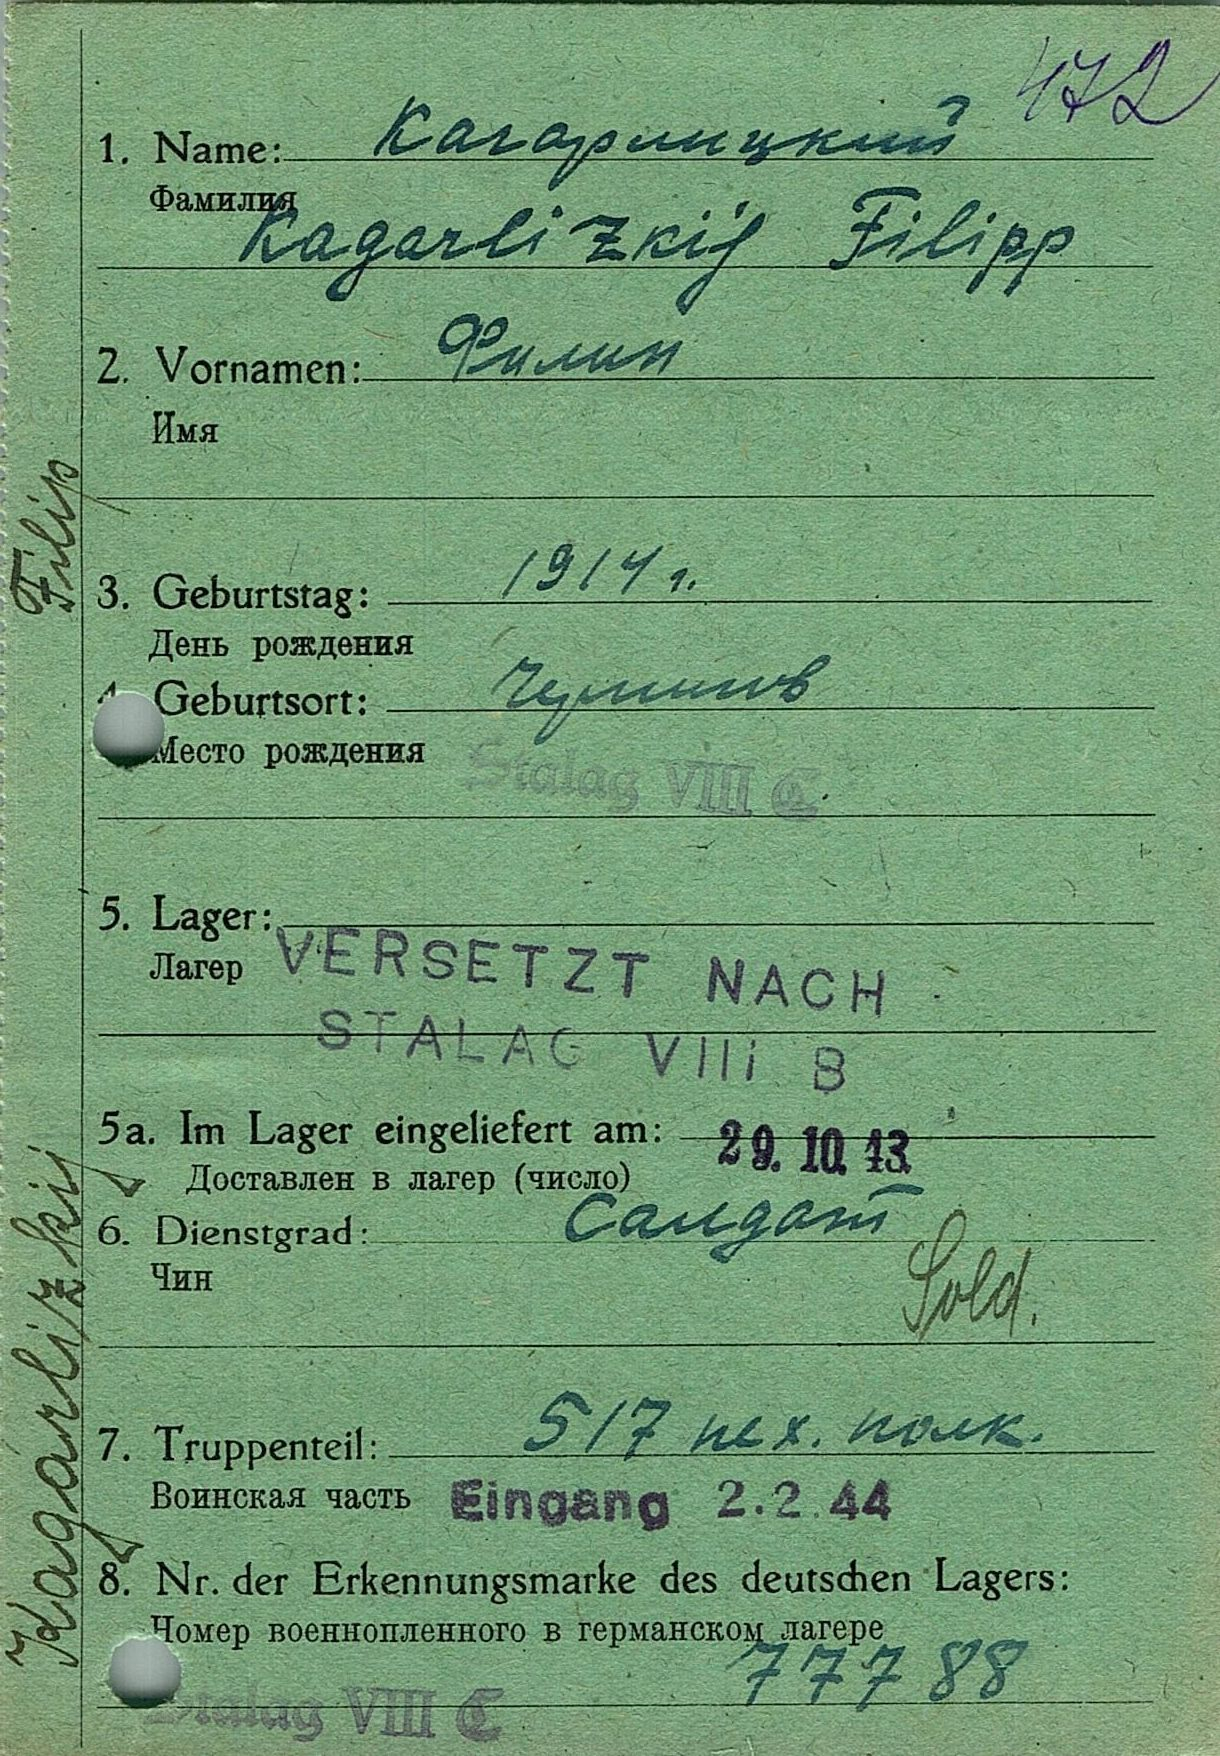 472
1. Name: Кагарлицкий
Фамилия
Kagarlizkij Filipp
2. Vornamen: Филип
Имя
3. Geburtstag: 1914 г.
День рождения
4. Geburtsort:
Место рождения
Stalag VIII C
5. Lager:
Лагер
VERSETZT NACH
STALAG VIIi B
5a. Im Lager eingeliefert am: 29. 10. 43
Доставлен в лагер (число)
6. Dienstgrad: Салдат
Чин
Sold.
7. Truppenteil: 517 пех. полк.
Воинская часть
Eingang 2.2.44
8. Nr. der Erkennungsmarke des deutschen Lagers:
Номер военнопленного в германском лагере
77788
Stalag VIII C
Kagarlizkij Filip